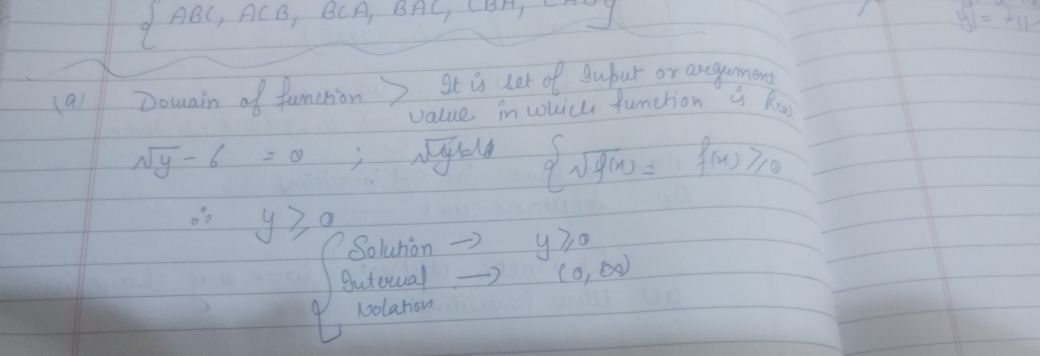 { ABC, ACB, BCA, BAC, CBA,
y = +11
(a) Domain of function > It is set of Input or argument
value in which function is Real
√y - 6 = 0 ; { √f(x) = f(x) ≥ 0
∴ y ≥ 0
{ Solution → y ≥ 0
Interval → (0, ∞)
Notation